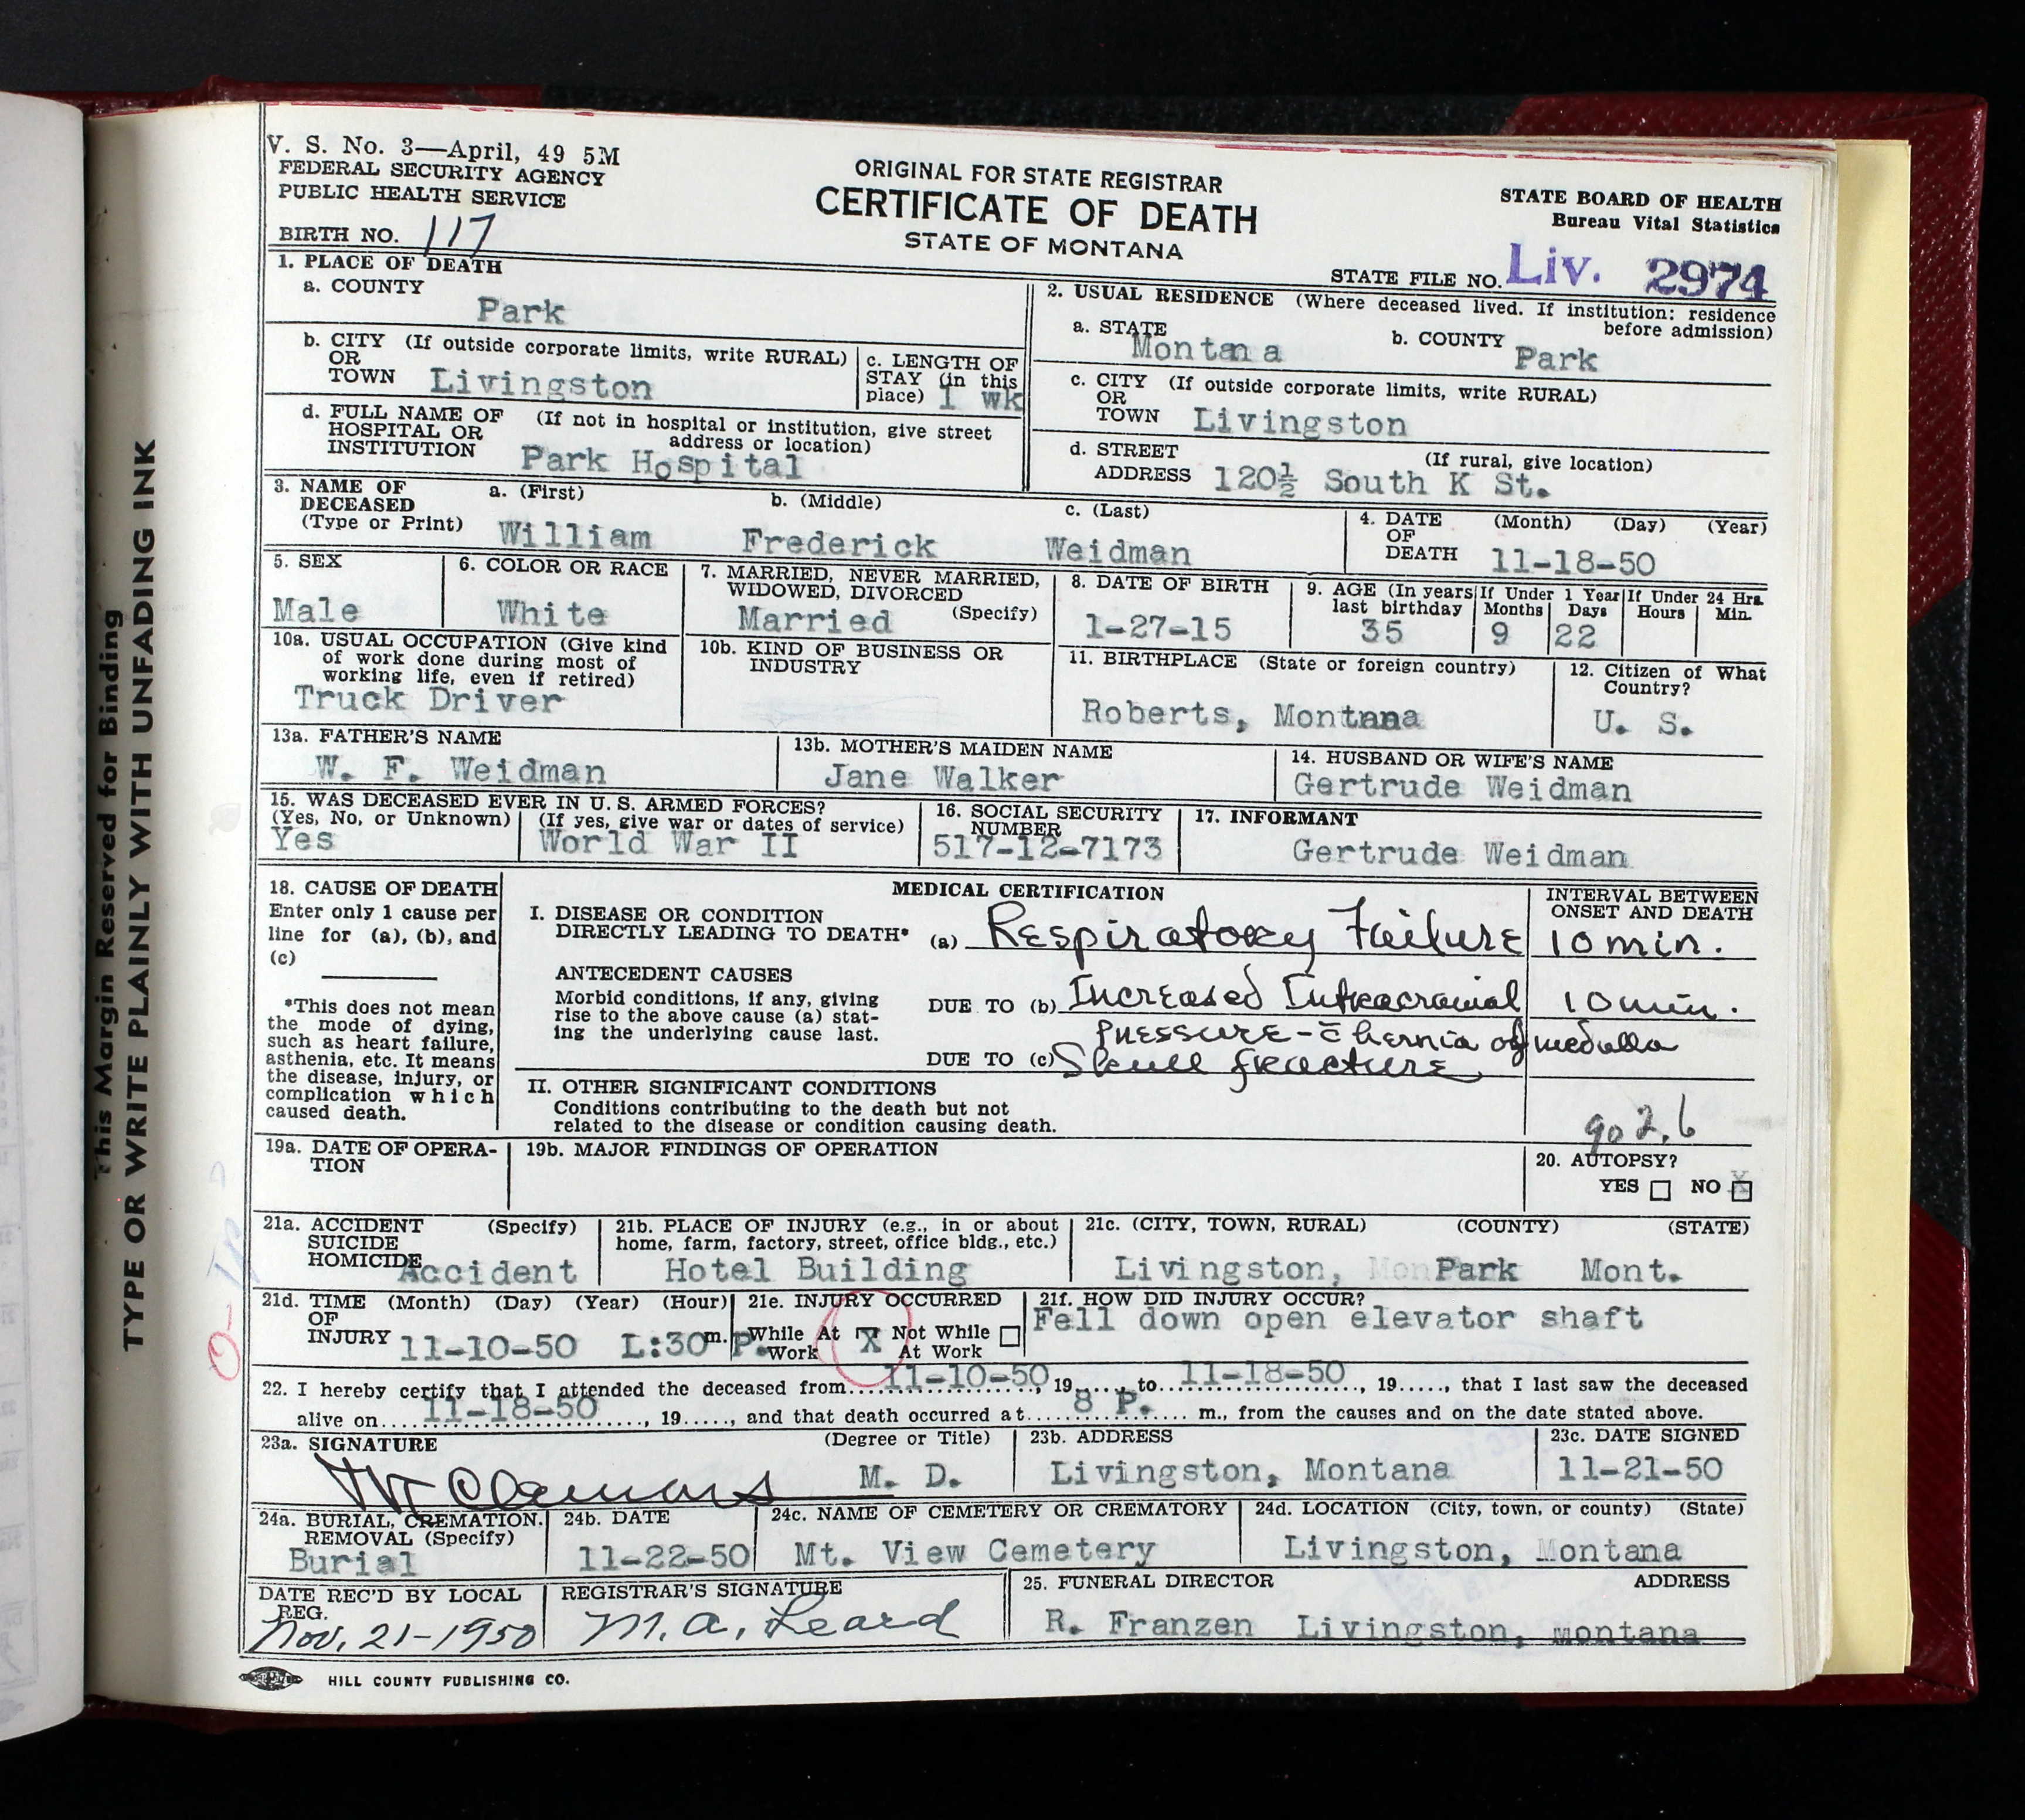 V. S. No. 3—April, 49 5M
FEDERAL SECURITY AGENCY
PUBLIC HEALTH SERVICE
BIRTH NO. 117
ORIGINAL FOR STATE REGISTRAR
CERTIFICATE OF DEATH
STATE OF MONTANA
STATE BOARD OF HEALTH
Bureau Vital Statistics
STATE FILE NO. Liv. 2974
This Margin Reserved for Binding
TYPE OR WRITE PLAINLY WITH UNFADING INK
1. PLACE OF DEATH
a. COUNTY
Park
b. CITY (If outside corporate limits, write RURAL)
OR
TOWN Livingston
c. LENGTH OF
STAY (in this
place) 1 wk
d. FULL NAME OF (If not in hospital or institution, give street
HOSPITAL OR address or location)
INSTITUTION Park Hospital
2. USUAL RESIDENCE (Where deceased lived. If institution: residence
before admission)
a. STATE Montana b. COUNTY Park
c. CITY (If outside corporate limits, write RURAL)
OR
TOWN Livingston
d. STREET (If rural, give location)
ADDRESS 120½ South K St.
3. NAME OF DECEASED (Type or Print)
a. (First) b. (Middle) c. (Last)
William Frederick Weidman
4. DATE OF DEATH (Month) (Day) (Year)
11-18-50
5. SEX
Male
6. COLOR OR RACE
White
7. MARRIED, NEVER MARRIED,
WIDOWED, DIVORCED
(Specify)
Married
8. DATE OF BIRTH
1-27-15
9. AGE (In years last birthday
35
If Under 1 Year
Months Days
9 22
If Under 24 Hrs.
Hours Min.
10a. USUAL OCCUPATION (Give kind
of work done during most of
working life, even if retired)
Truck Driver
10b. KIND OF BUSINESS OR
INDUSTRY
11. BIRTHPLACE (State or foreign country)
Roberts, Montana
12. Citizen of What
Country?
U. S.
13a. FATHER'S NAME
W. F. Weidman
13b. MOTHER'S MAIDEN NAME
Jane Walker
14. HUSBAND OR WIFE'S NAME
Gertrude Weidman
15. WAS DECEASED EVER IN U. S. ARMED FORCES?
(Yes, No, or Unknown) (If yes, give war or dates of service)
Yes World War II
16. SOCIAL SECURITY
NUMBER
517-12-7173
17. INFORMANT
Gertrude Weidman
18. CAUSE OF DEATH
Enter only 1 cause per
line for (a), (b), and
(c)
*This does not mean
the mode of dying,
such as heart failure,
asthenia, etc. It means
the disease, injury, or
complication which
caused death.
MEDICAL CERTIFICATION
INTERVAL BETWEEN
ONSET AND DEATH
I. DISEASE OR CONDITION
DIRECTLY LEADING TO DEATH* (a) Respiratory Failure 10 min.
ANTECEDENT CAUSES
Morbid conditions, if any, giving
rise to the above cause (a) stat-
ing the underlying cause last.
DUE TO (b) Increased Intracranial 10 min.
Pressure - c̄ hernia of medulla
DUE TO (c) Skull fracture
II. OTHER SIGNIFICANT CONDITIONS
Conditions contributing to the death but not
related to the disease or condition causing death.
902.6
19a. DATE OF OPERA-
TION
19b. MAJOR FINDINGS OF OPERATION
20. AUTOPSY?
YES NO X
21a. ACCIDENT (Specify)
SUICIDE
HOMICIDE Accident
21b. PLACE OF INJURY (e.g., in or about
home, farm, factory, street, office bldg., etc.)
Hotel Building
21c. (CITY, TOWN, RURAL) (COUNTY) (STATE)
Livingston, Park Mont.
21d. TIME (Month) (Day) (Year) (Hour)
OF
INJURY 11-10-50 L:30 m. P.
21e. INJURY OCCURRED
While At Work X Not While At Work
21f. HOW DID INJURY OCCUR?
Fell down open elevator shaft
22. I hereby certify that I attended the deceased from 11-10-50, 19....., to 11-18-50, 19....., that I last saw the deceased
alive on 11-18-50, 19....., and that death occurred at 8 P. m., from the causes and on the date stated above.
23a. SIGNATURE (Degree or Title)
M. D.
23b. ADDRESS
Livingston, Montana
23c. DATE SIGNED
11-21-50
24a. BURIAL, CREMATION.
REMOVAL (Specify)
Burial
24b. DATE
11-22-50
24c. NAME OF CEMETERY OR CREMATORY
Mt. View Cemetery
24d. LOCATION (City, town, or county) (State)
Livingston, Montana
DATE REC'D BY LOCAL
REG.
Nov. 21-1950
REGISTRAR'S SIGNATURE
M. A. Leard
25. FUNERAL DIRECTOR ADDRESS
R. Franzen Livingston, montana
HILL COUNTY PUBLISHING CO.